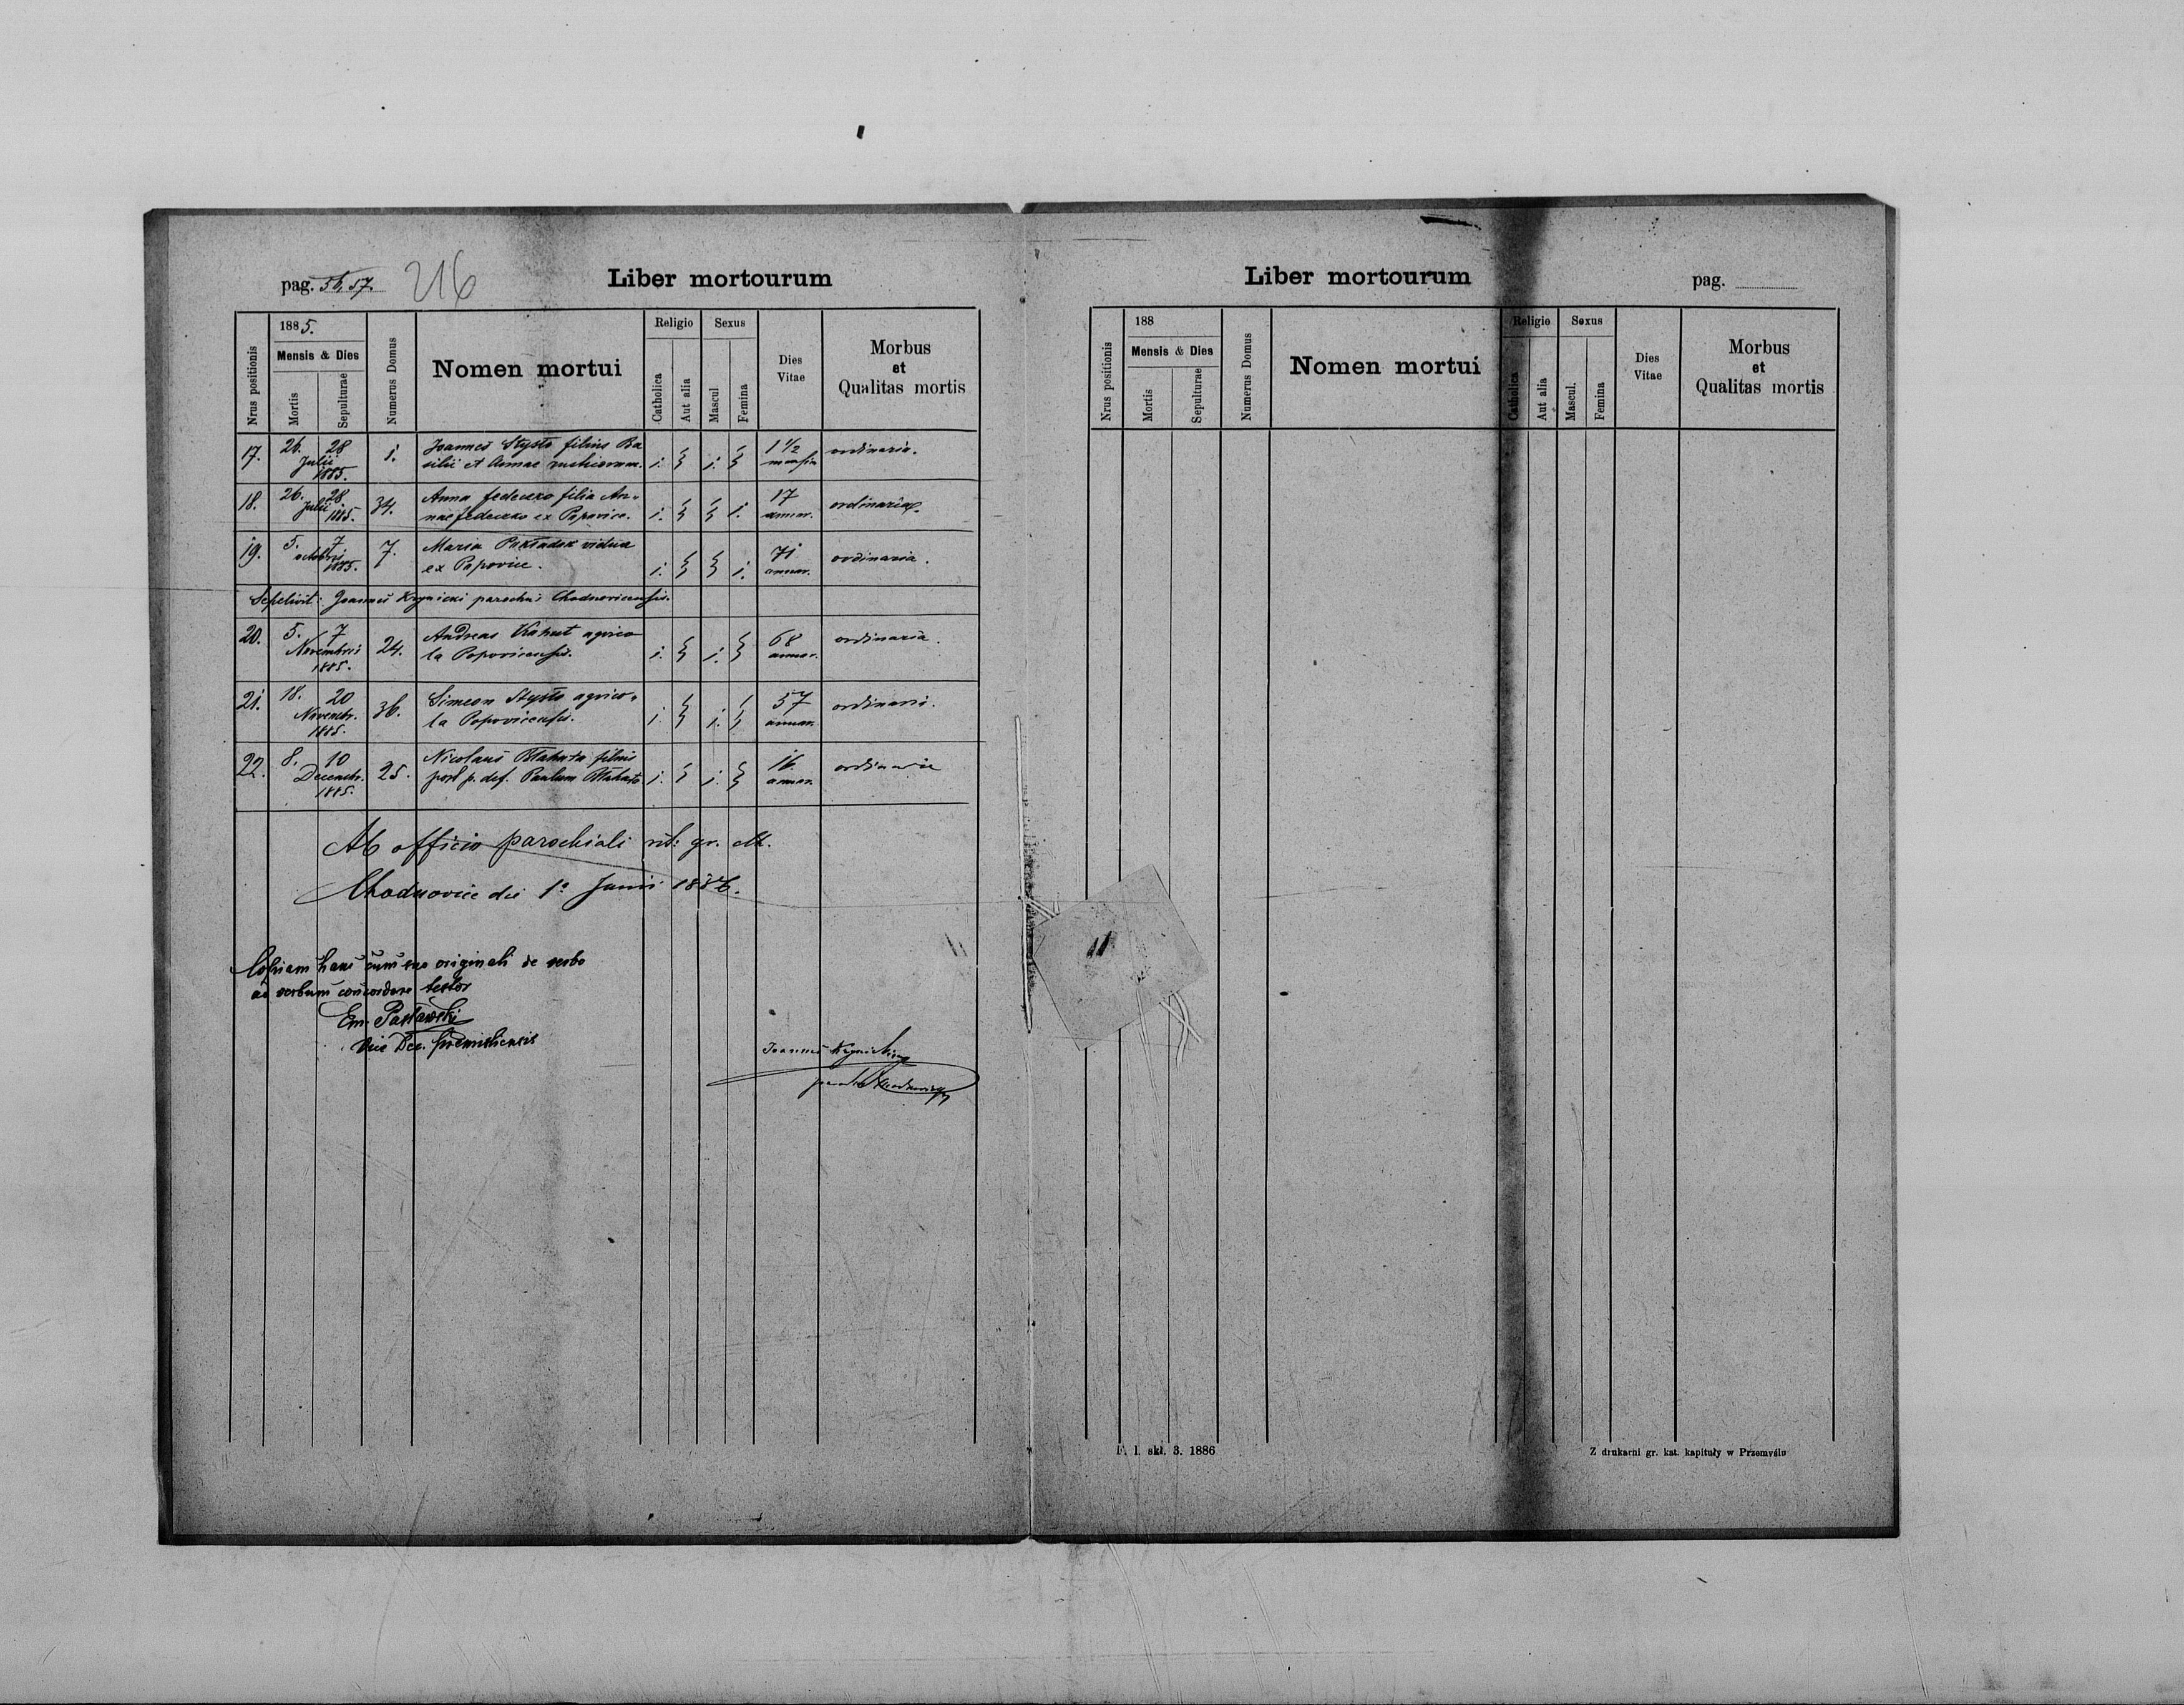 pag. 56, 57. 216 Liber mortourum
Nrus positionis
1885.
Mensis & Dies
Mortis
Sepulturae
Numerus Domus
Nomen mortui
Religio
Catholica
Aut alia
Sexus
Mascul
Femina
Dies
Vitae
Morbus
et
Qualitas mortis
17. 26. 28 1. Joannes Stysło filius Ba 1 1/2 ordinaria.
Julii silii et Annae rusticorum. 1. 1. mensin
1885.
18. 26. 28. 34. Anna Fedeczko filia An- 17 ordinaria.
Julii 1885. nae Fedeczko ex Popovice. 1. 1. annor.
19. 5. 7 7. Maria vidua 71 ordinaria.
octobri 1885. ex Popovice. 1. 1. annor.
Sepelivit: Joannes Krynicki parochus Chodnovicensis.
20. 5. 7 24. Andreas agrico 68 ordinaria.
Novembris la Popovicensis. 1. 1. annor.
1885.
21. 18. 20 36. Simeon Stysło agrico- 57 ordinaria.
Novembr. la Popovicensis. 1. 1. annor.
1885.
22. 8. 10 25. Nicolaus filius 16 ordinaria
Decembr. post p. def. Paulum 1. 1. annor.
1885.
Ab officio parochiali rit: gr. cath.
Chodnovice die 1º Junii 1886.
Copiam hanc cum suo originali de verbo
ad verbum concordare testor
Em. Pasławski
Vice Dec. Premisliensis
Joannes Krynicki
Liber mortourum pag.
Nrus positionis
188
Mensis & Dies
Mortis
Sepulturae
Numerus Domus
Nomen mortui
Religio
Catholica
Aut alia
Sexus
Mascul.
Femina
Dies
Vitae
Morbus
et
Qualitas mortis
F. 1. skł. 3. 1886
Z drukarni gr. kat. kapituły w Przemyślu